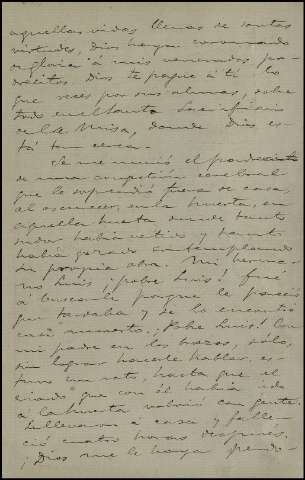 aquellas vidas llenas de santas
virtudes, Dios haya coronado
en gloria á mis venerados pa-
dres. Dios te pague á ti lo
que reces por sus almas, sobre
todo en el Santo Sacrificio
de la Misa, donde Dios es-
tá tan cerca.
Se me murió el padre
de una congestión cerebral
que le sorprendió fuera de casa,
al oscurecer, en la huerta, en
aquella huerta donde tanto
sudor había vertido y tanto
había gozado contemplando
su propia obra. Mi herma-
no Luis ¡pobre Luis! fué
á buscarle porque le pareció
que tardaba y se lo encontró
casi muerto. ¡Pobre Luis! Con
mi padre en los brazos, sólo,
sin lograr hacerle hablar, es-
tuvo un rato, hasta que el
criado que con él había ido
á la huerta volvió con gente.
Lo llevaron á casa y falle-
ció cuatro horas después.
¡Dios me le haya perdo-